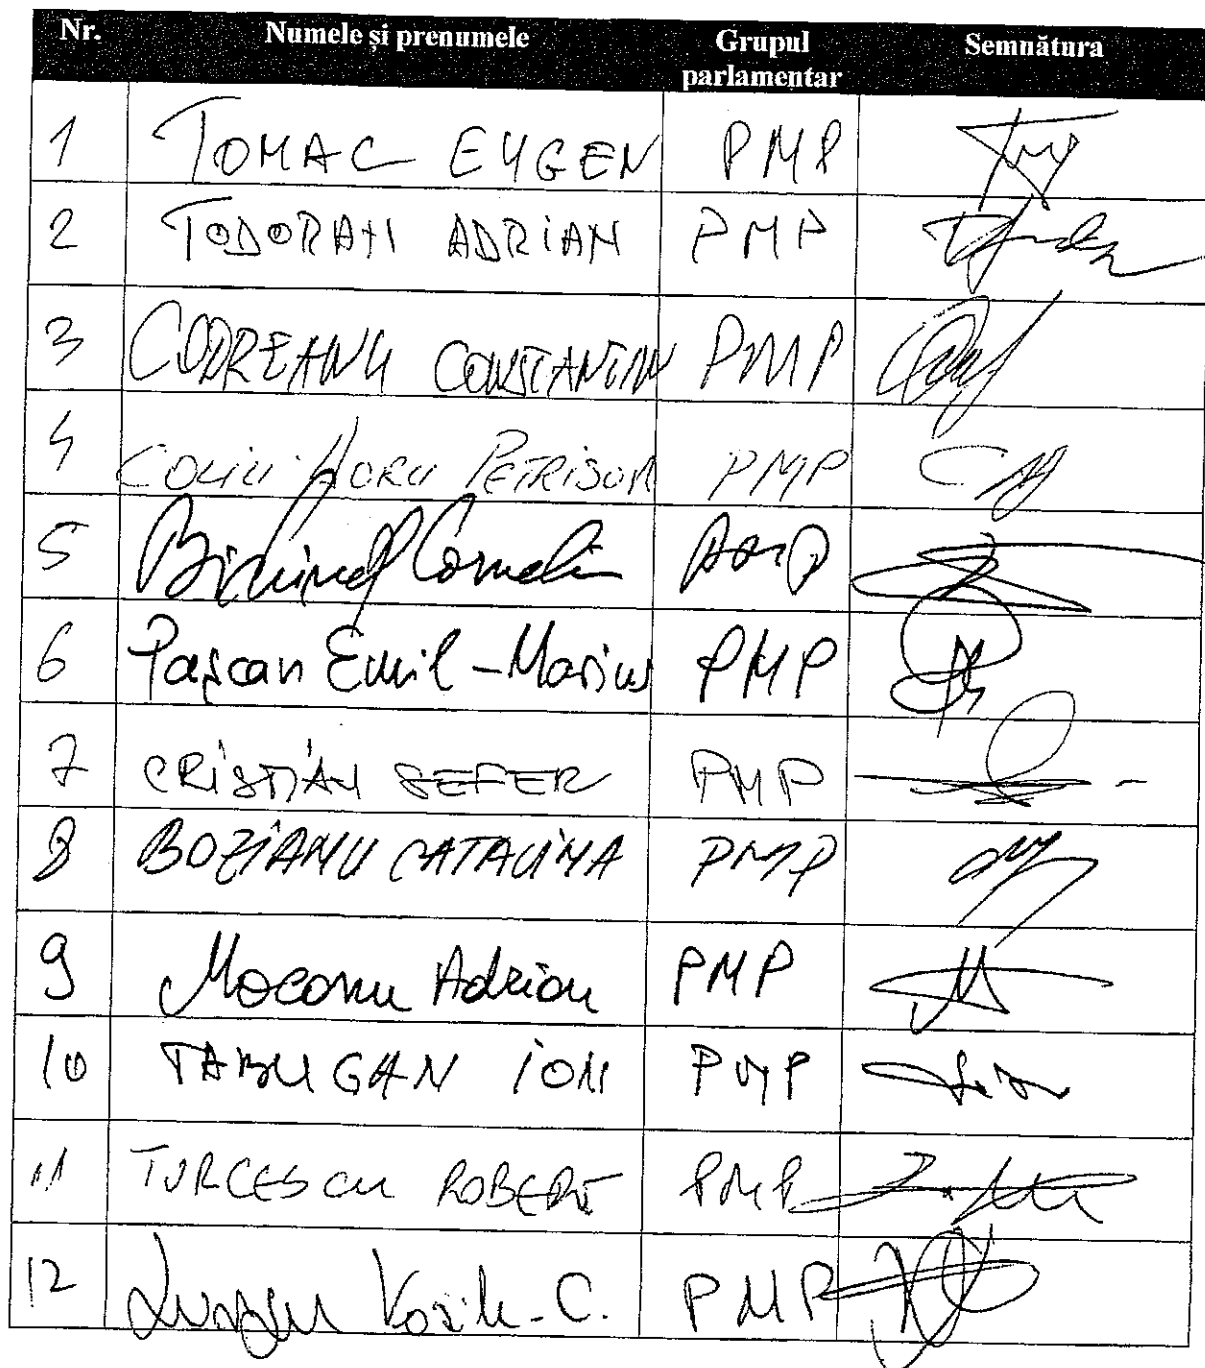 Nr. Numele și prenumele Grupul parlamentar Semnătura
1 TOMAC EUGEN PMP
2 TODORAN ADRIAN PMP
3 CODREANU CONSTANTIN PMP
4 PETRISOR PMP
5 Bichineț Corneliu PMP
6 Pașcan Emil-Marius PMP
7 CRISTIAN SEFER PMP
8 BOZIANU CATALINA PMP
9 Mocanu Adrian PMP
10 TABUGAN ION PMP
11 TURCESCU ROBERT PMP
12 Lungu Vasile-C. PMP